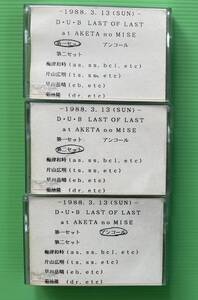 -1988. 3. 13 (SUN) -
D・U・B LAST OF LAST
at AKETA no MISE
第一セット アンコール
第二セット
梅津和時 (as, ss, bcl, etc)
片山広明 (ts, ss, etc)
早川岳晴 (eb, etc)
菊池隆 (dr, etc)
-1988. 3. 13 (SUN) -
D・U・B LAST OF LAST
at AKETA no MISE
第一セット アンコール
第二セット
梅津和時 (as, ss, bcl, etc)
片山広明 (ts, ss, etc)
早川岳晴 (eb, etc)
菊池隆 (dr, etc)
-1988. 3. 13 (SUN) -
D・U・B LAST OF LAST
at AKETA no MISE
第一セット アンコール
第二セット
梅津和時 (as, ss, bcl, etc)
片山広明 (ts, ss, etc)
早川岳晴 (eb, etc)
菊池隆 (dr, etc)